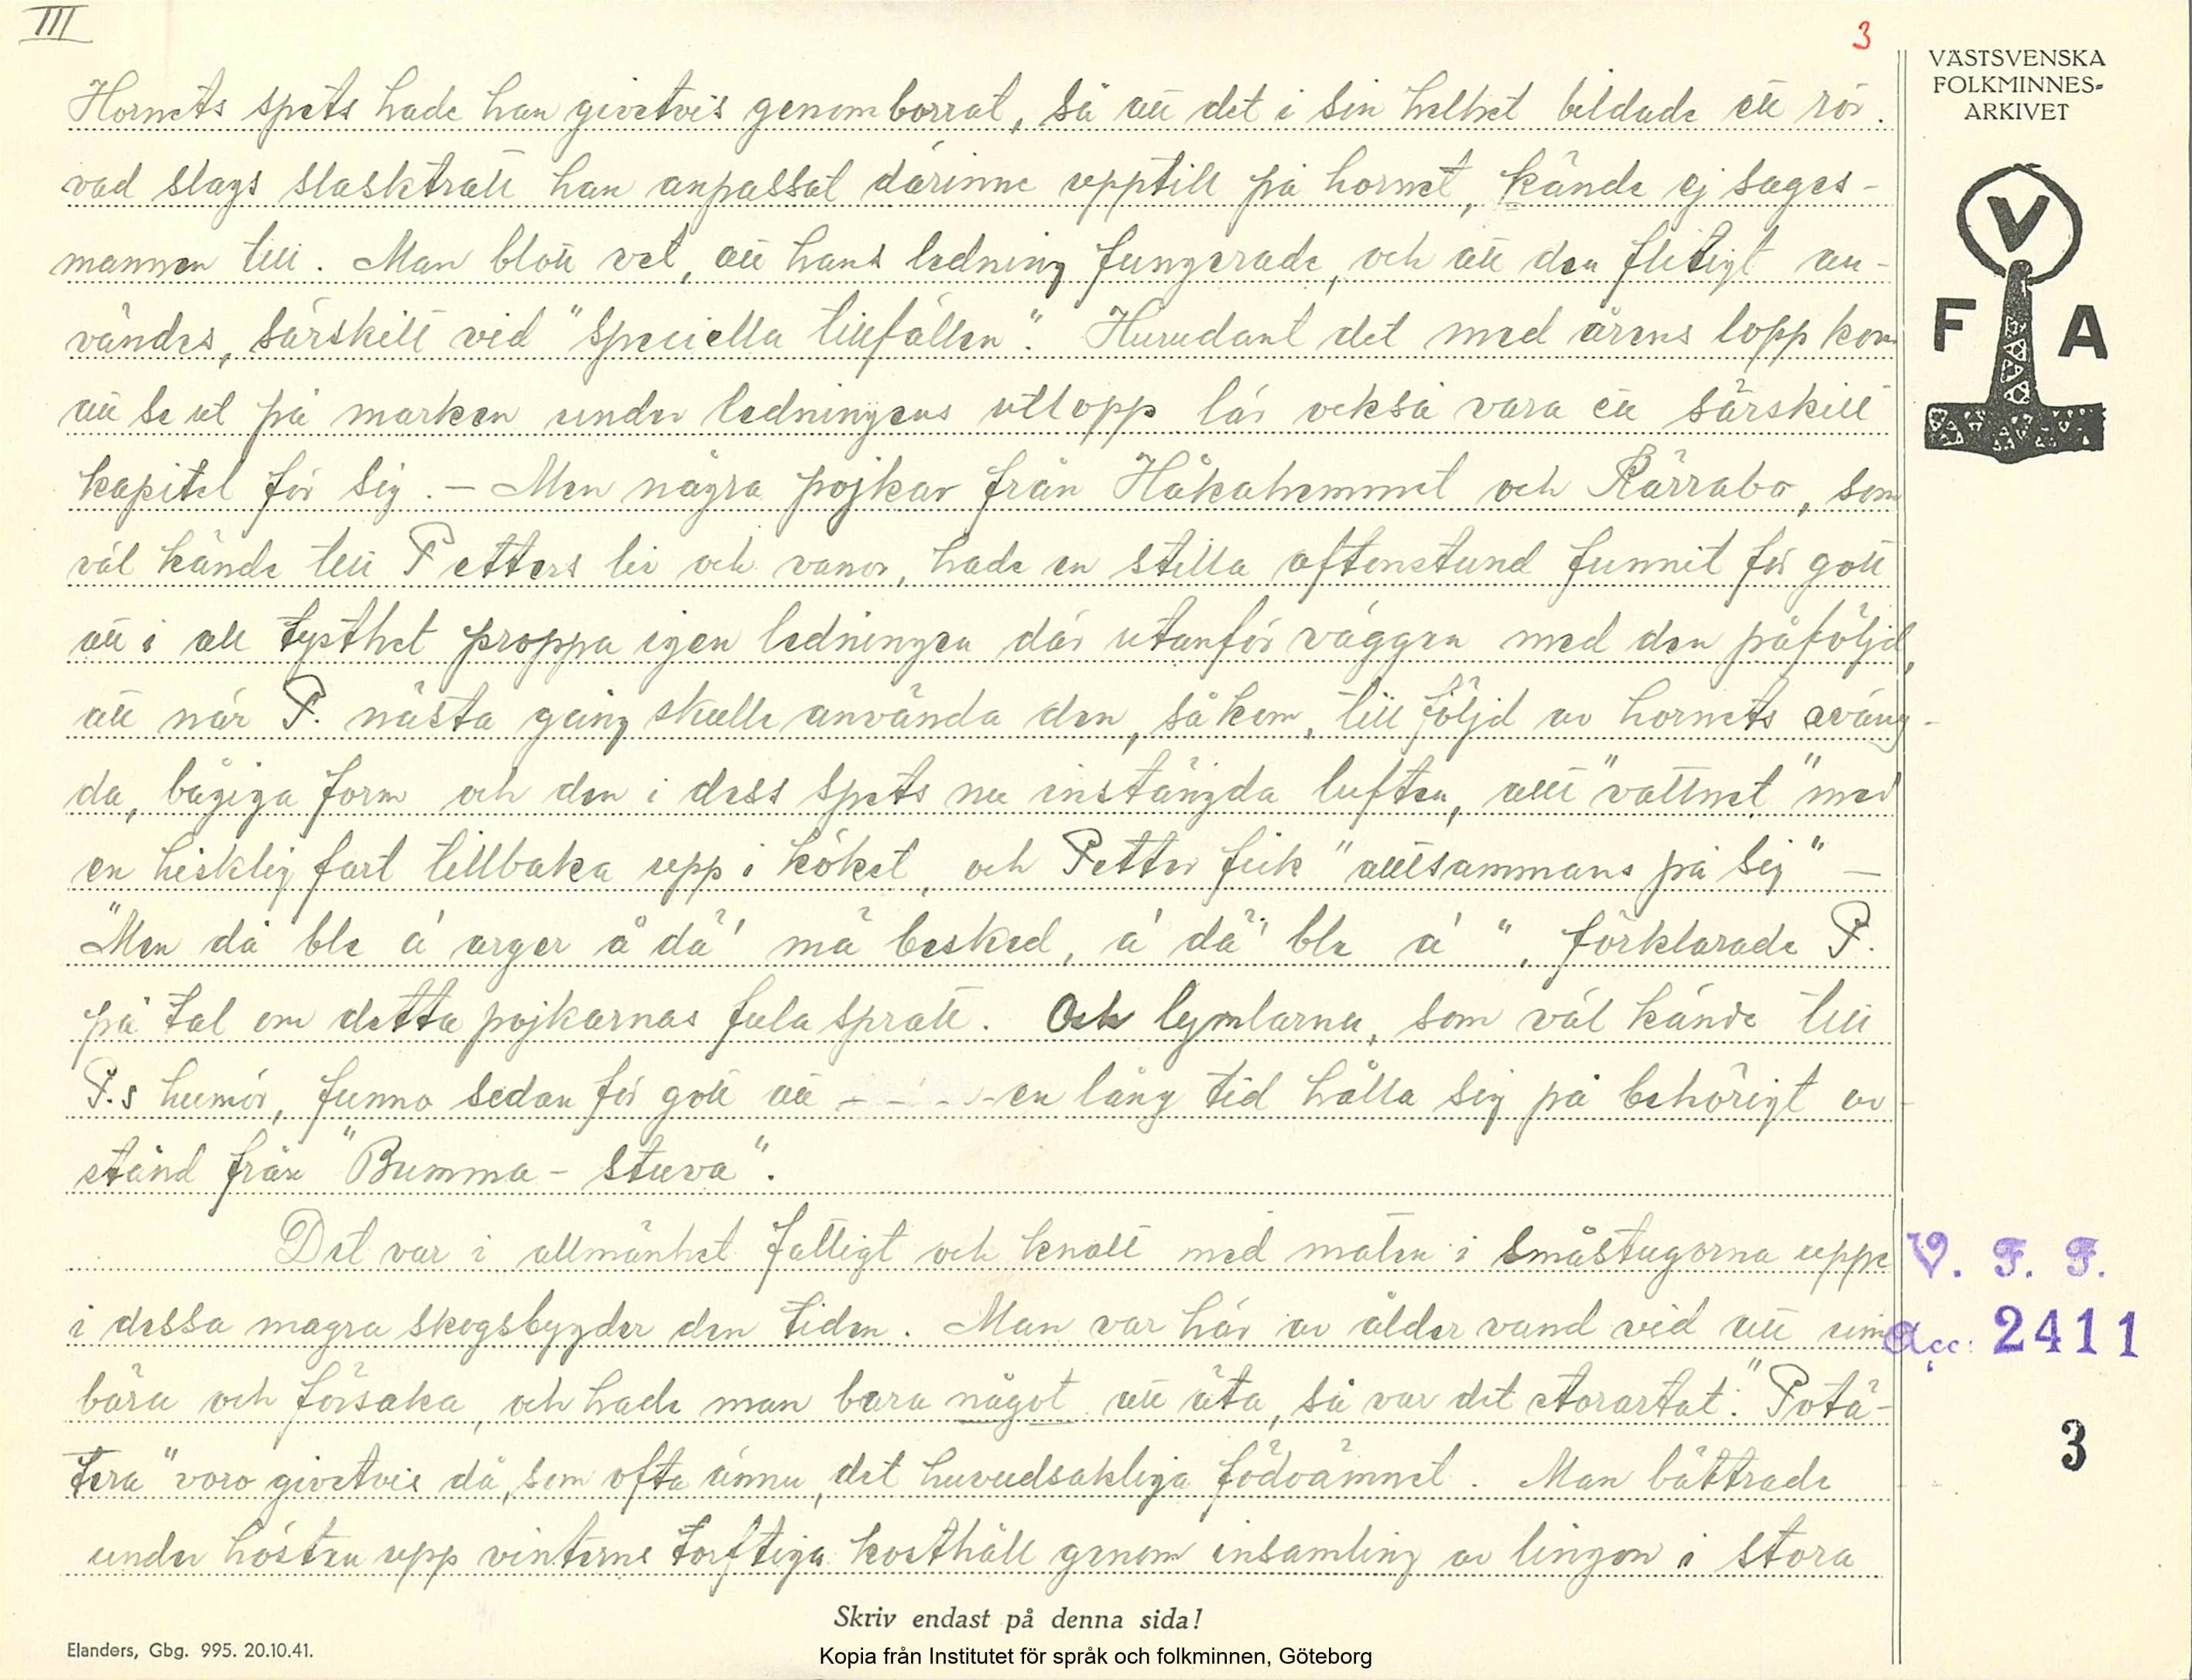 III
3
VÄSTSVENSKA
FOLKMINNES-
ARKIVET
V
F A
Hornets spets hade han givetvis genomborrat, så att det i sin helhet bildade ett rör.
vad slags slasktratt han anpassat därinne upptill på hornet, kände ej sages-
mannen till. Man blott vet, att hans ledning fungerade, och att den flitigt an-
vändes, särskilt vid "speciella tillfällen". Hurudant det med årens lopp kom
att se ut på marken under ledningens utlopp lär också vara ett särskilt
kapitel för sig. - Men några pojkar från Håkahemmet och Rärrabo, som
väl kände till Petters liv och vanor, hade en stilla aftonstund funnit för gott
att i all tysthet proppa igen ledningen där utanför väggen med den påföljd,
att när P. nästa gång skulle använda den, så kom, till följd av hornets sväng-
da, bågiga form och den i dess spets nu instängda luften, allt "vattnet" med
en hisklig fart tillbaka upp i köket, och Petter fick "alltsammans på sig" -
"Men då ble a' arger å dä' mä besked, a' dä' ble a' ", förklarade P.
på tal om detta pojkarnas fula spratt. Och lymlarna, som väl kände till
P.s humör, funno sedan för gott att - - - - en lång tid hålla sig på behörigt av-
stånd från "Bumma-stuva".
Det var i allmänhet fattigt och knalt med maten i småstugorna uppe
i dessa magra skogsbygder den tiden. Man var här av ålder vand vid att um-
bära och försaka, och hade man bara något att äta, så var det storartat. "Potä-
tera" voro givetvis då, som ofta ännu, det huvudsakliga födoämnet. Man bättrade
under hösten upp vinterns torftiga kosthåll genom insamling av lingon i stora
V. F. F.
Acc: 2411
3
Skriv endast på denna sida!
Elanders, Gbg. 995. 20.10.41.
Kopia från Institutet för språk och folkminnen, Göteborg